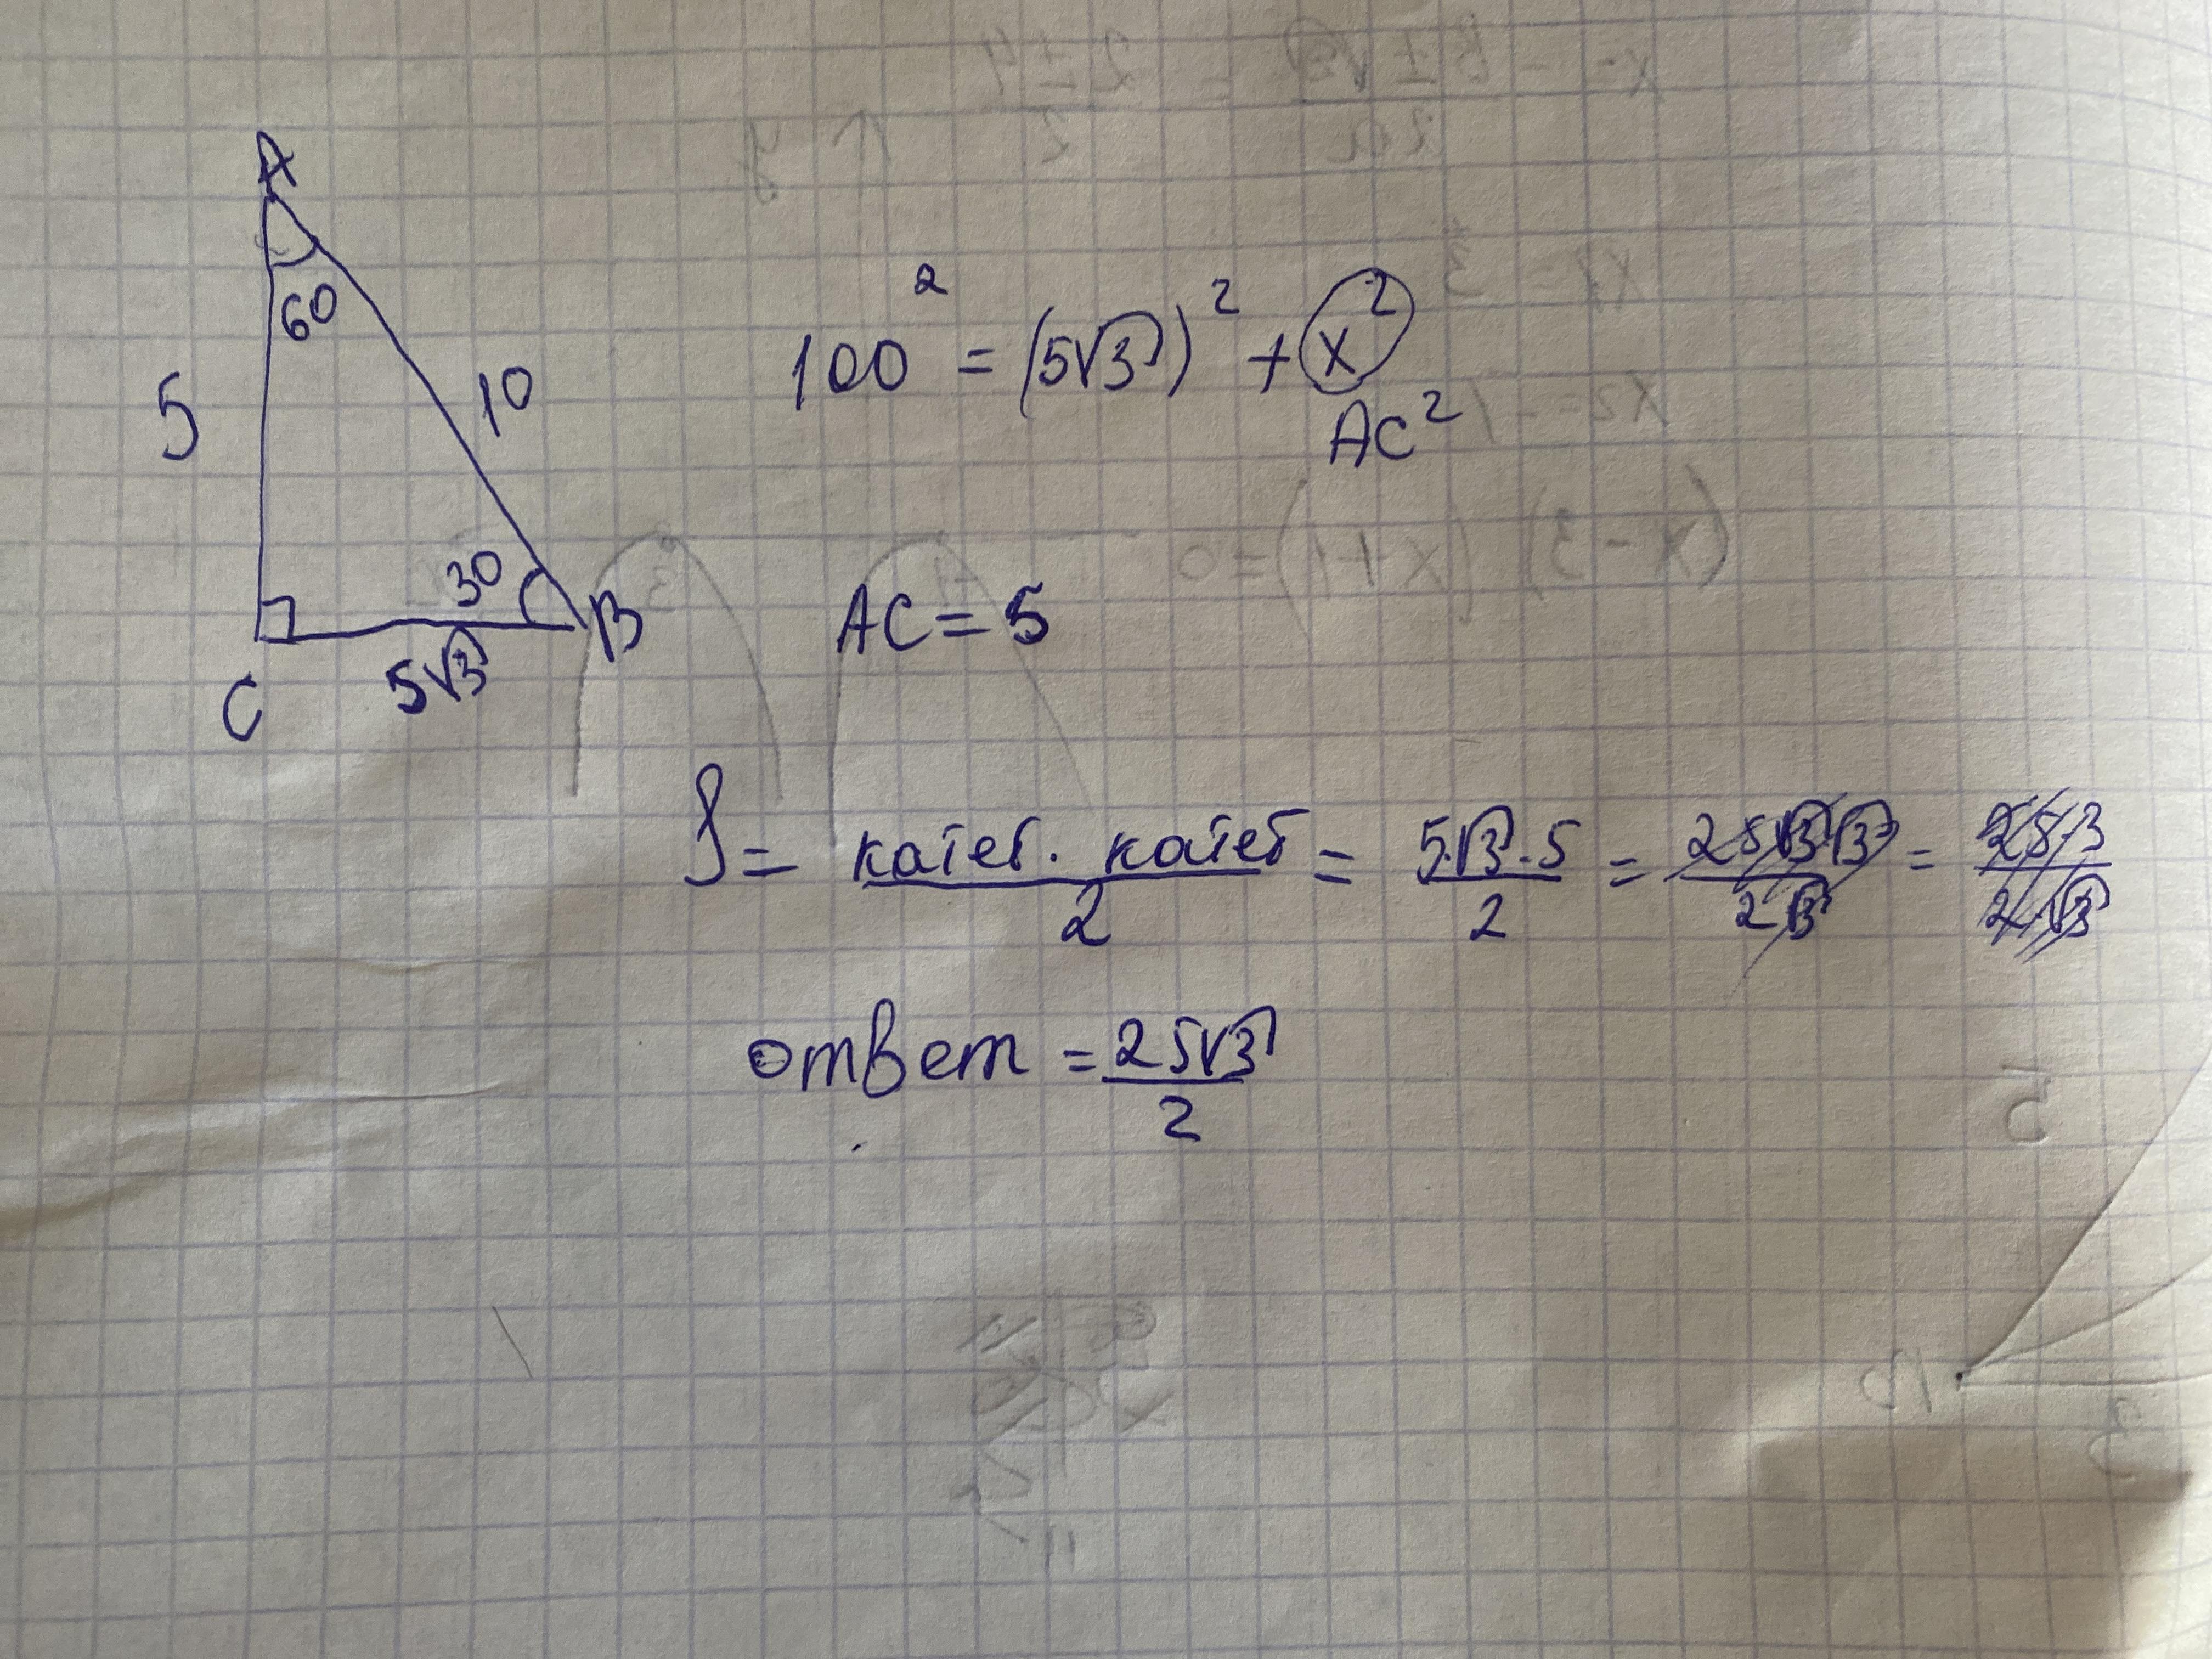 A
60
5
10
30
C
5√3
B
100² = (5√3)² + x²
AC²
AC = 5
S = катет · катет / 2 = 5√3 · 5 / 2 = 25√3√3 / 2√3 = 25·3 / 2·√3
ответ = 25√3 / 2